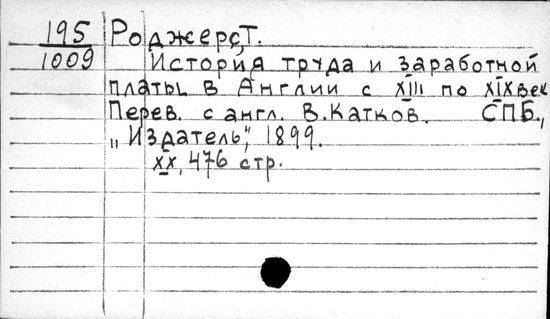 195 Роджерс, Т.
1009 История труда и заработной
платы в Англии с XIII по XIX век
Перев. с англ. В. Катков. СПБ.,
„Издатель", 1899.
XX, 476 стр.